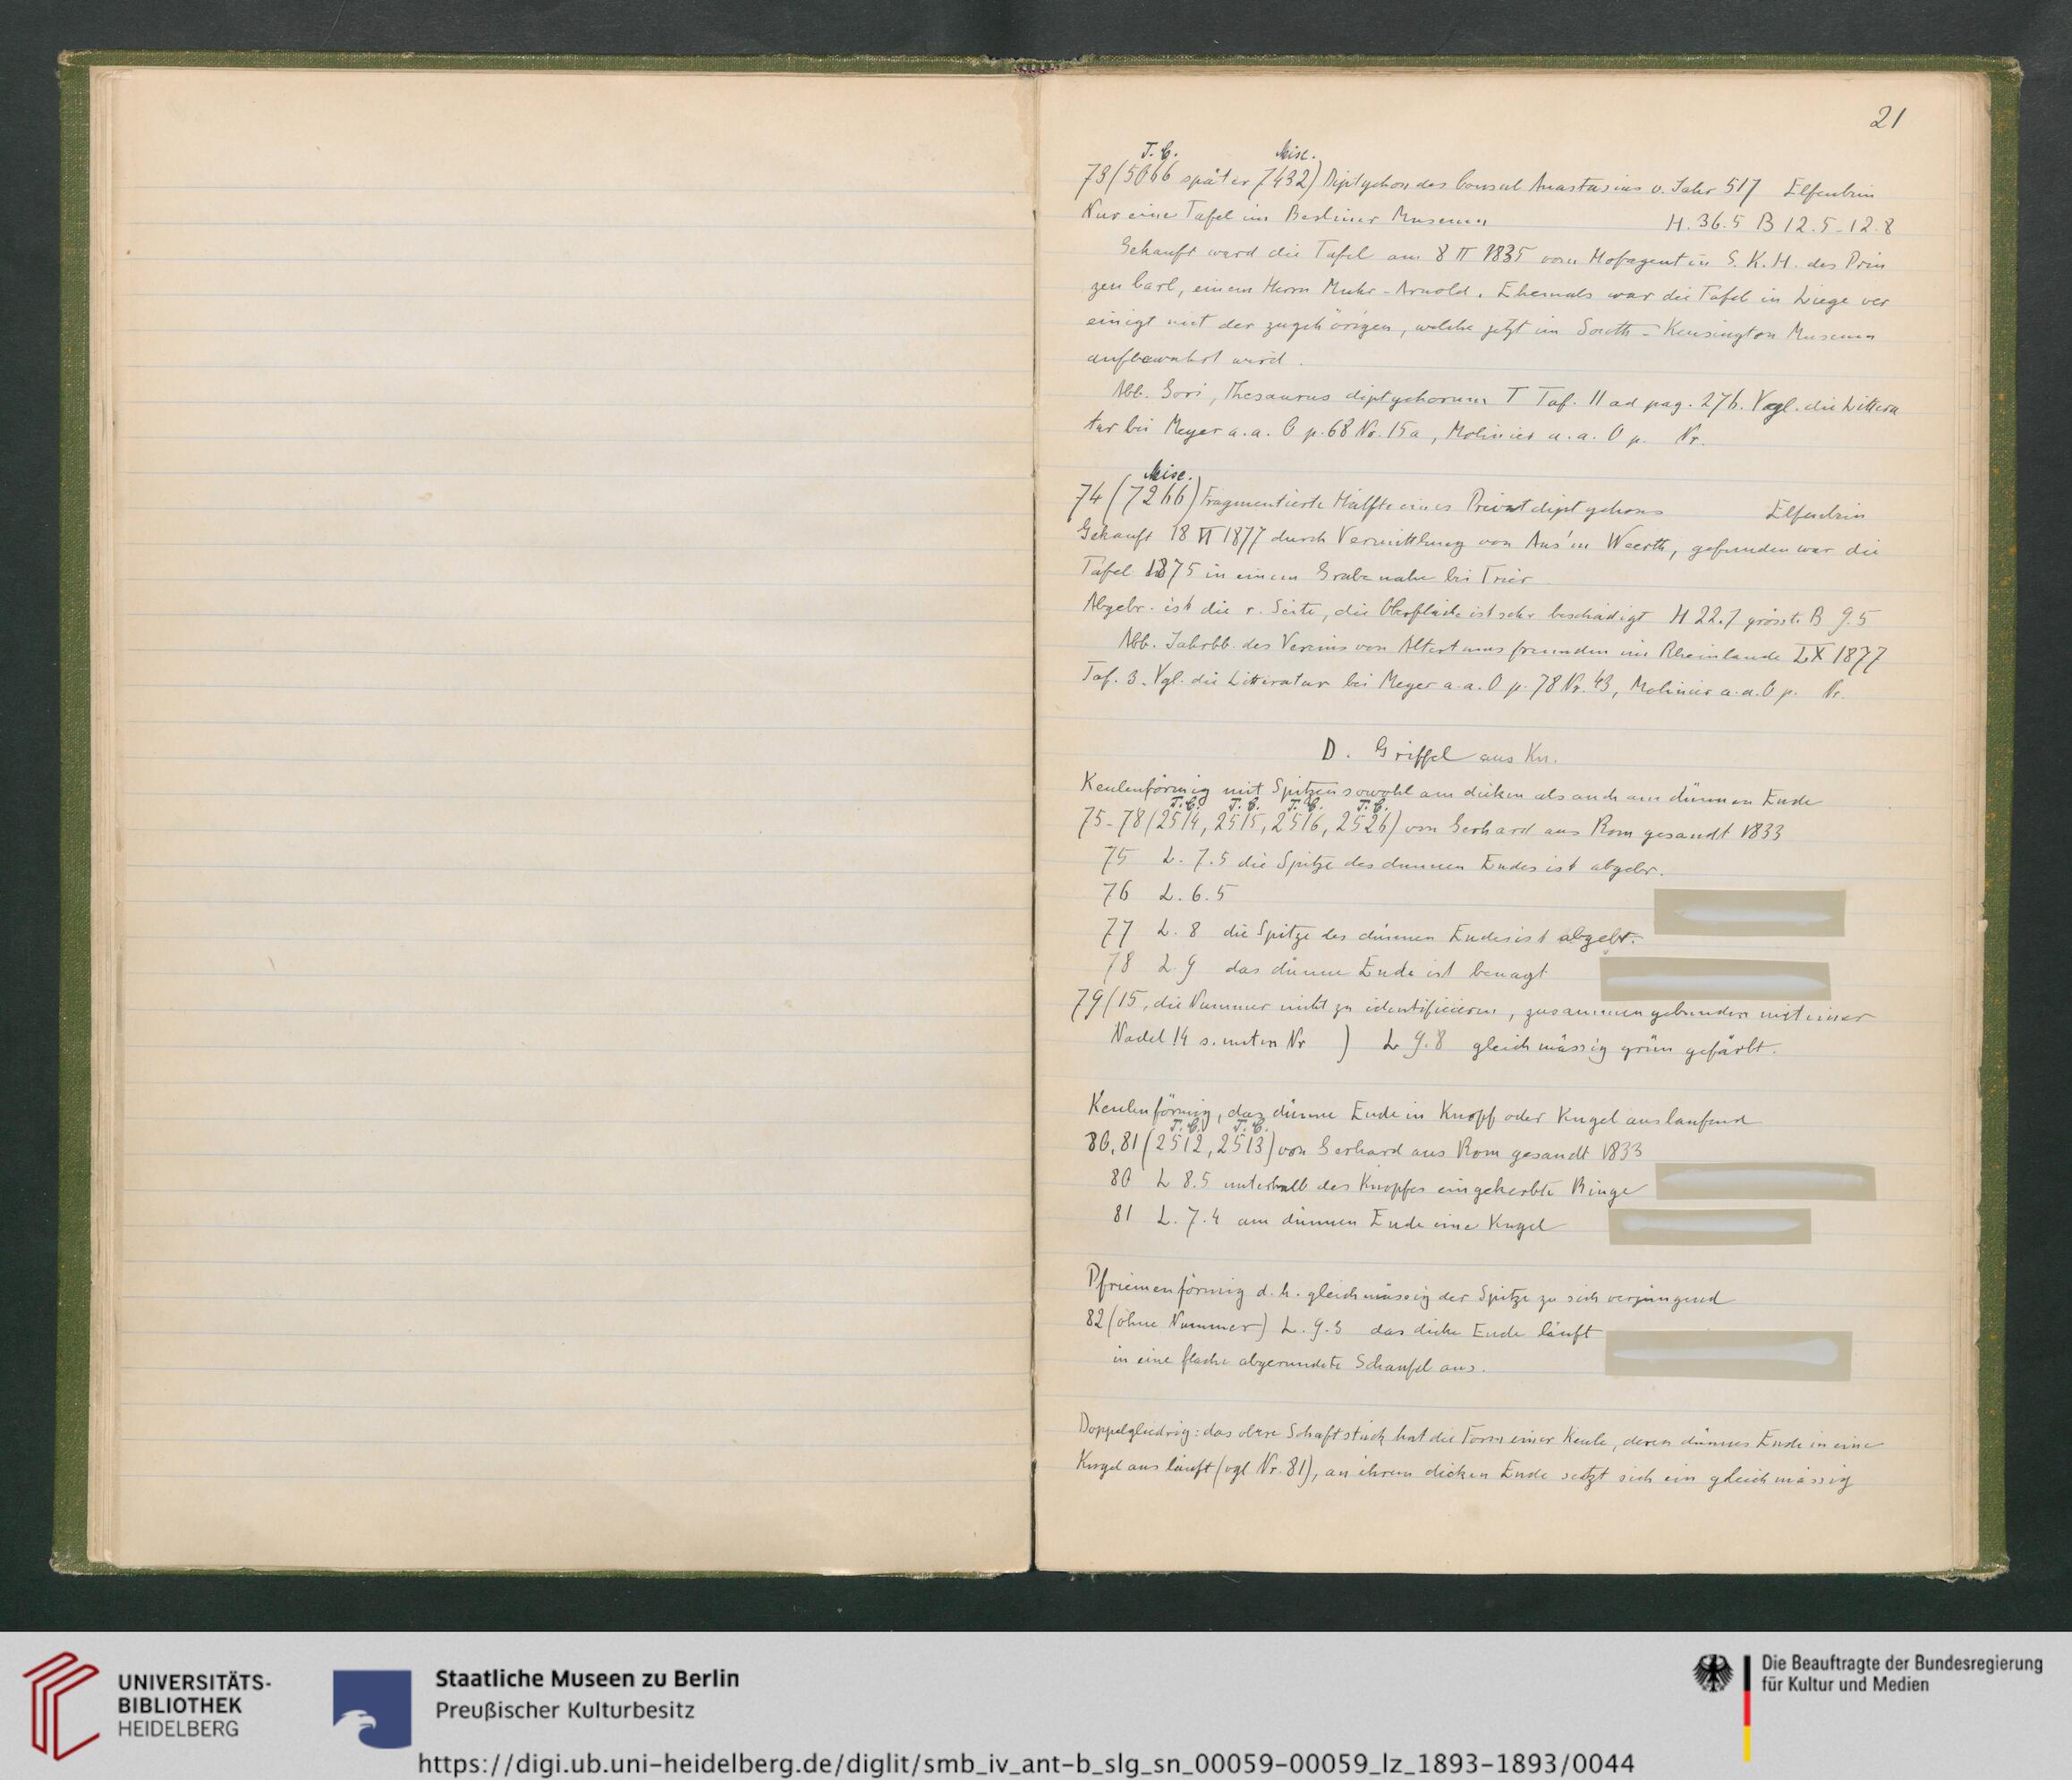 21
T.C. Misc.
73 (5066 später 7432) Diptychon des Consul Anastasius v. Jahr 517 Elfenbein
Nur eine Tafel im Berliner Museum H. 36.5 B 12.5-12.8
Gekauft ward die Tafel am 8 II 1835 vom Hofagenten S. K. H. des Prin
zen Carl, einem Herrn Muhr-Arnold. Ehemals war die Tafel in Liege ver
einigt mit der zugehörigen, welche jetzt im South-Kensington Museum
aufbewahrt wird.
Abb. Gori, Thesaurus diptychorum I Taf. 11 ad pag. 276. Vgl. die Littera
tur bei Meyer a. a. O p. 68 No. 15a, Molinier a. a. O p. Nr.
Misc.
74 (7266) Fragmentierte Hälfte eines Privatdiptychons Elfenbein
Gekauft 18 VI 1877 durch Vermittlung von Aus'm Weerth, gefunden war die
Tafel 1875 in einem Grabe nahe bei Trier
Abgebr. ist die r. Seite, die Oberfläche ist sehr beschädigt H 22.7 grösste B 9.5
Abb. Jahrbb. des Vereins von Altertumsfreunden im Rheinlande LX 1877
Taf. 3. Vgl. die Litteratur bei Meyer a. a. O p. 78 Nr. 43, Molinier a. a. O p. Nr.
D. Griffel aus Kn.
Keulenförmig mit Spitzen sowohl am dicken als auch am dünnen Ende
T.C. T.C. T.C. T.C.
75-78 (2514, 2515, 2516, 2526) von Gerhard aus Rom gesandt 1833
75 L. 7.5 die Spitze des dünnen Endes ist abgebr.
76 L. 6.5
77 L. 8 die Spitze des dünnen Endes ist abgebr.
78 L 9 das dünne Ende ist benagt
79 (15, die Nummer nicht zu identificieren, zusammengebunden mit einer
Nadel 14 s. unten Nr ) L 9.8 gleichmässig grün gefärbt.
Keulenförmig, das dünne Ende in Knopf oder Kugel auslaufend
T.C. T.C.
80, 81 (2512, 2513) von Gerhard aus Rom gesandt 1833
80 L 8.5 unterhalb des Knopfes eingekerbte Ringe
81 L. 7.4 am dünnen Ende eine Kugel
Pfriemenförmig d. h. gleichmässig der Spitze zu sich verjüngend
82 (ohne Nummer) L. 9.3 das dicke Ende läuft
in eine flache abgerundete Schaufel aus.
Doppelgliedrig: das obere Schaftstück hat die Form einer Keule, deren dünnes Ende in eine
Kugel ausläuft (vgl Nr. 81), an ihrem dicken Ende setzt sich ein gleichmässig
UNIVERSITÄTS-
BIBLIOTHEK
HEIDELBERG
Staatliche Museen zu Berlin
Preußischer Kulturbesitz
Die Beauftragte der Bundesregierung
für Kultur und Medien
https://digi.ub.uni-heidelberg.de/diglit/smb_iv_ant-b_slg_sn_00059-00059_lz_1893-1893/0044